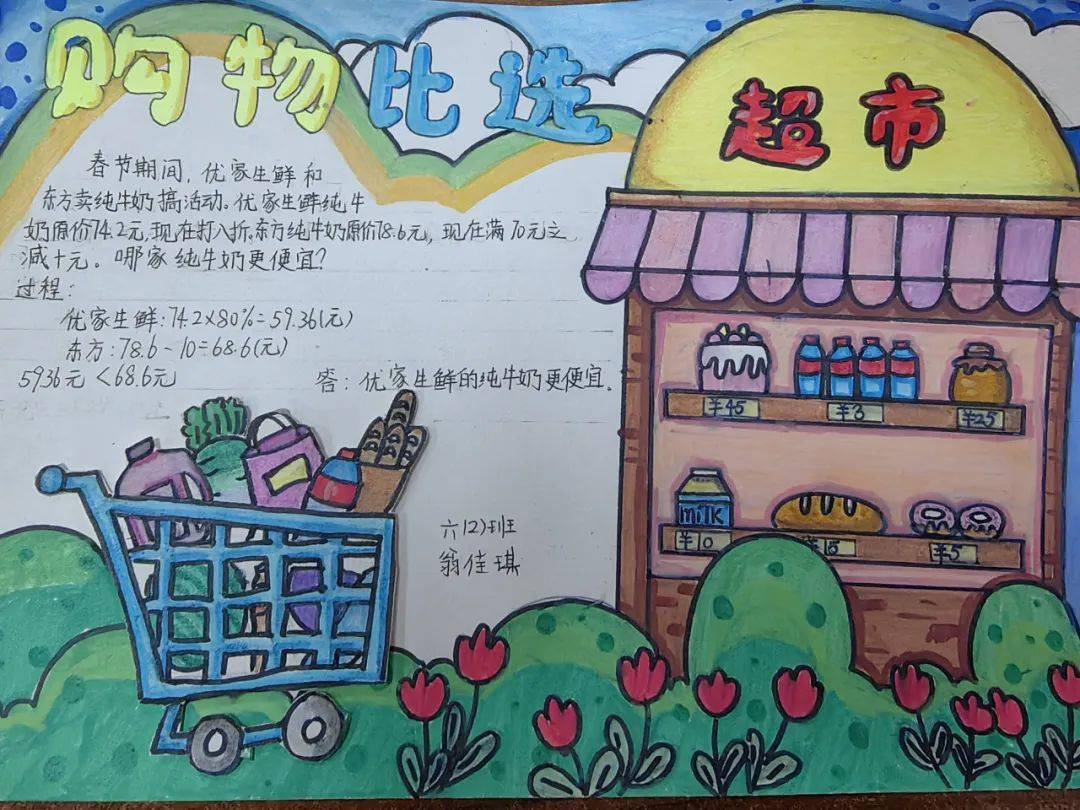 购物比选
超市
春节期间，优家生鲜和
东方卖纯牛奶搞活动。优家生鲜纯牛
奶原价74.2元，现在打八折。东方纯牛奶原价78.6元，现在满70元立
减十元。哪家纯牛奶更便宜？
过程：
优家生鲜：74.2×80%=59.36(元)
东方：78.6-10=68.6(元)
59.36元<68.6元
答：优家生鲜的纯牛奶更便宜。
¥45
¥3
¥25
milk
¥10
¥15
¥5
六(2)班
翁佳琪